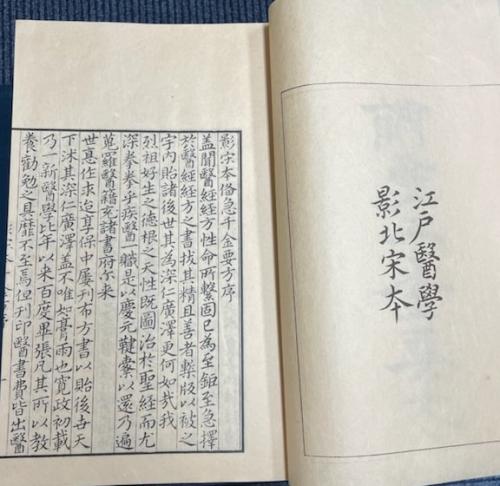 江户醫學
影北宋本
影宋本俻急千金要方序
蓋聞醫經經方性命所繫固已為至鉅至急擇
於醫經經方之書拔其精且善者槧版以被之
宇内貽諸後世其為深仁廣澤更何如哉我
烈祖好生之德根之天性既圖治於聖經而尤
深拳拳乎疾醫一職是以慶元鞬櫜以還乃遍
蒐羅醫籍充諸書府尔来
世悳作求迨享保中屢刊布方書以貽後世天
下沐其深仁廣澤盖不唯如膏雨也寛政初載
乃一新醫學比年以来百度畢張凡其所以教
養勸勉之具靡不至焉但刊印醫書費皆出醫